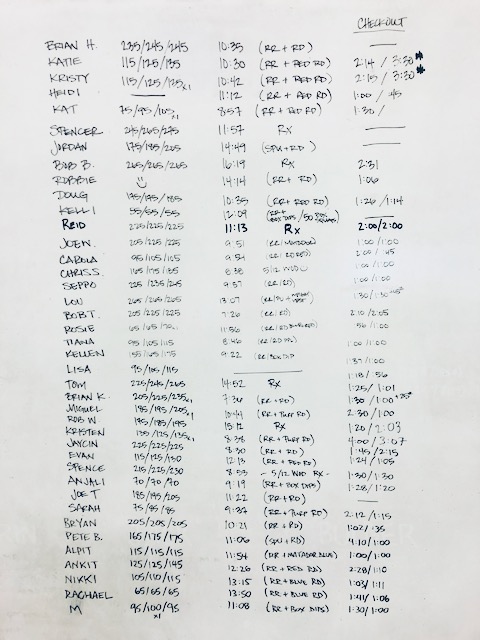 CHECKOUT
BRIAN H. 235/245/245 10:35 (RR + RD) —
KATIE 115/125/135 10:30 (RR + RED RD) 2:14 / 3:30
KRISTY 115/125/135x1 10:42 (RR + RED RD) 2:15 / 3:30
HEIDI — 11:12 (RR + RED RD) 1:00 / 45
KAT 75/95/105x1 8:57 (RR + RED RD) 1:30 /
SPENCER 245/265/275 11:57 Rx —
JORDAN 175/185/205 14:49 (SPU + RD) —
BOB B. 265/265/265 16:19 Rx 2:31
ROBBIE 14:14 (RR + RD) 1:06
DOUG 175/175/185 10:35 (RR + RED RD) 1:26 / 1:14
KELLI 55/55/55 12:09 (RR + BOX DIPS / 50 —
REID 225/225/225 11:13 Rx 2:00/2:00
JOE N. 205/225/225 9:51 (RR/ 1:00/1:00
CAROLA 95/105/125 9:54 (RR/RD RED) 2:00 / 45
CHRIS S. 165/175/185 8:38 5/12 WOD 1:00/1:00
SEPPO 225/235/245 9:57 (RR/RD) 1:00/1:00
LOU 265/265/265 13:07 (RR/ 1:30/1:30
BOB T. 205/225/225 7:26 (RR/RD) 2:10/2:05
ROSIE 65/65/70 11:56 (RR/RD 56/1:00
TIANA 95/105/115 8:46 (RR/RD 1:00/1:00
KELLEN 155/165/175 9:22 (RR/BOX DIP 1:37/1:00
LISA 95/105/115 — 1:18/ 56
TOM 225/245/265 14:52 Rx 1:25/ 1:01
BRIAN K. 205/225/235x1 7:36 (RR + RD) 1:30 /1:00
MIGUEL 185/195/205x1 10:44 (RR + TURF RD) 2:30 /1:00
ROB W. 185/185/195 15:12 Rx 1:20 / 2:03
KRISTEN 135/125/135x1 8:38 (RR + TURF RD) 4:00 / 3:07
JAYCIN 225/225/225 8:30 (RR + RD) 1:45/ 2:15
EVAN 115/125/130 12:13 (RR + RED RD) 1:24/1:05
SPENCE 215/225/230 8:53 - 5/12 WOD Rx - 1:30/1:30
ANJALI 70/70/70 9:19 (RR + BOX DIPS) 1:28/1:20
JOE T 185/195/205 11:22 (RR + RD) —
SARAH 75/85/85 9:37 (RR + TURF RD) 2:12/1:15
BRYAN 205/205/205 10:21 (RR + RD) 1:02/ :35
PETE B. 165/175/175 11:06 (SPU + RD) 4:10/1:00
ALPIT 115/115/115 11:54 (DR + MATADOR BLUE) 1:00/1:00
ANKIT 125/125/145 12:26 (RR + RED RD) 2:28/1:10
NIKKI 105/110/115 13:15 (RR + BLUE RD) 1:03/1:11
RACHAEL 65/65/65 13:50 (RR + BLUE RD) 1:41/1:06
M 95/100x1/95 11:08 (RR + BOX DIPS) 1:30/1:00